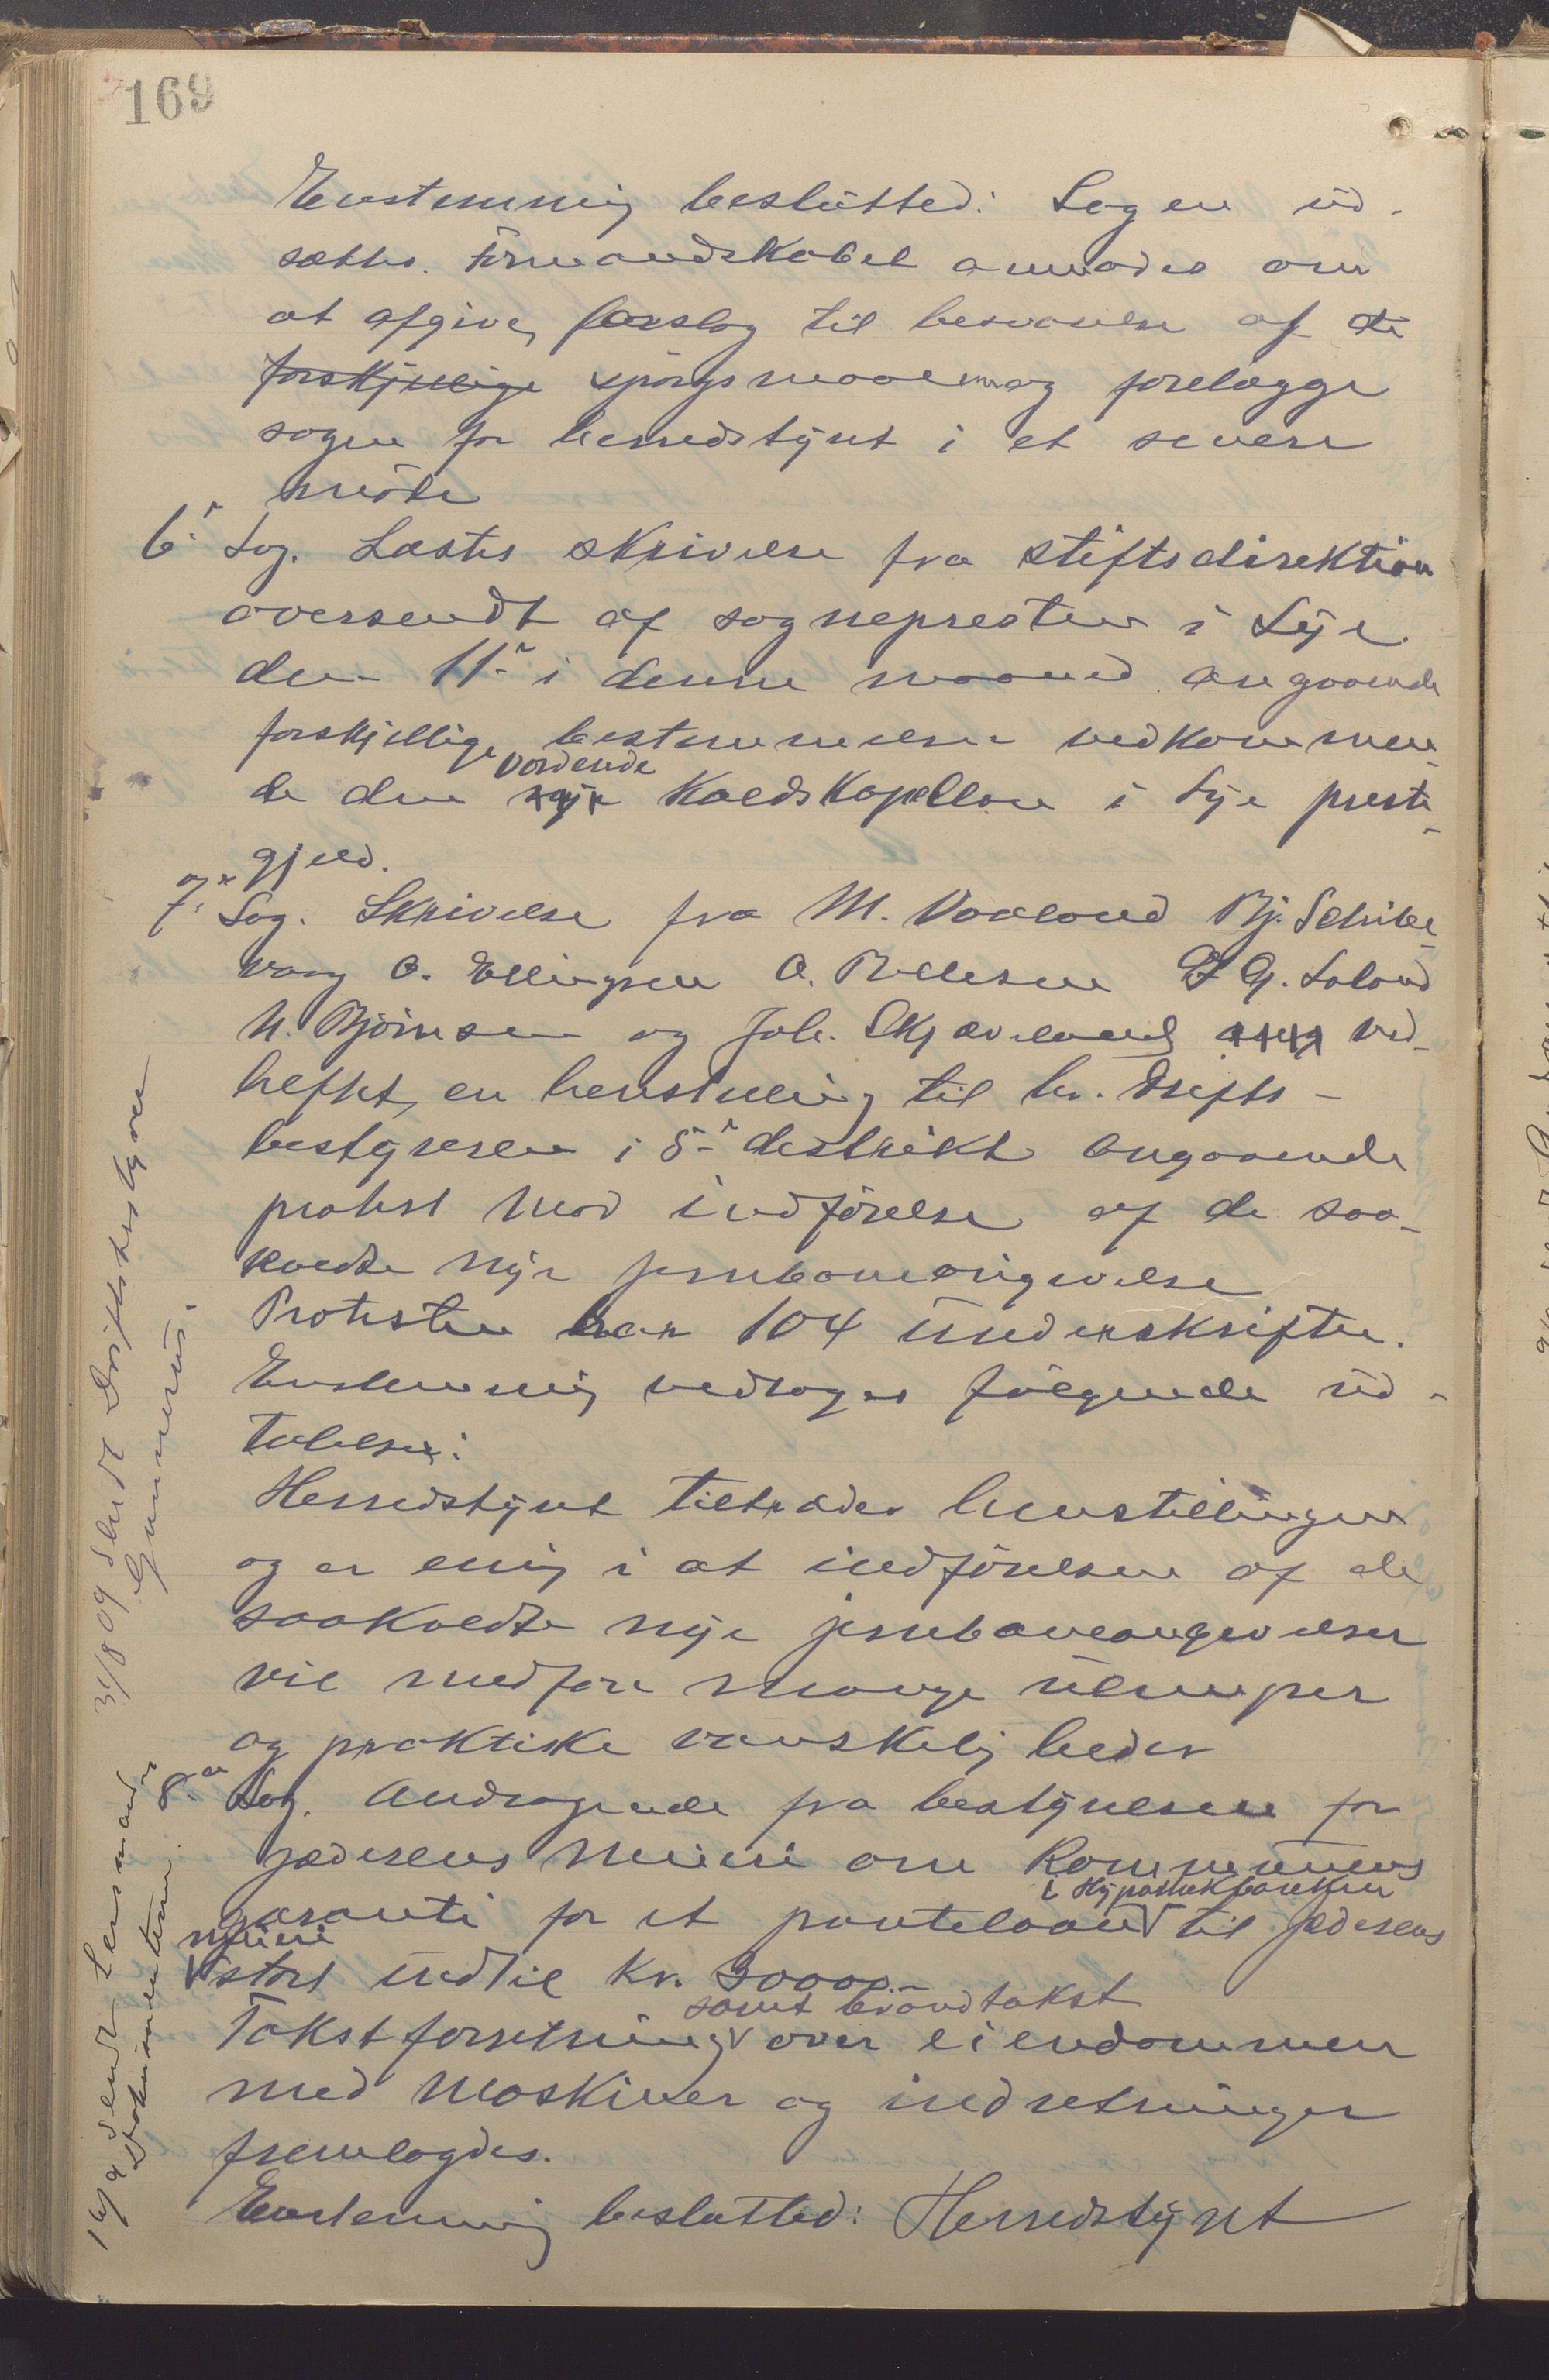 169
Enstemmig beslutted: Sagen ud-
sættes. Formandskabet anmodes om
at afgive forslag til besvarelse af de
forskjellige spørgsmaal og forelægge
sagen for herredstyret i et senere
møde
6. Sag. Læstes skrivelse fra stiftsdirektion
oversendt af sognepresten i Lye
den 11. i denne maaned angaaende
forskjellige bestemmelser vedkommen-
vordende
de den Kaldskapellan i Lye preste-
gjeld.
7. Sag. Skrivelse fra M. Vaaland Bj.
O. Ellingsen O. G. Laland
N. Bjørnsen og Joh. Skjæveland ved-
heftet en henstilling til hr. Drifts-
bestyreren i 5. distrikt angaaende
protest mod indførelse af de saa-
kaldte nye jernbaneangivelse
Protesten har 104 underskrifter.
Enstemmig vedtoges følgende ud-
talelse:
Herredstyret tiltræder henstillingen
og er enig i at indførelsen af de
saakaldte nye jernbaneangivelser
vil medføre mange ulemper
og praktiske vanskeligheder
8. Sag. Andragende fra bestyrelsen for
Jæderens Meieri om Kommunens
i Hypothekbanken
garanti for et pantelaan til Jæderens
meieri
stort indtil Kr. 30000.-
samt brandtakst
Takstforretning over eiendommen
med Maskiner og indretninger
fremlagdes.
Enstemmig besluttet: Herredstyret
31/8 09 Sendt Driftsbestyrer
Gunnerius.
16/9 sendt Lensmanden
Dokumenterne.